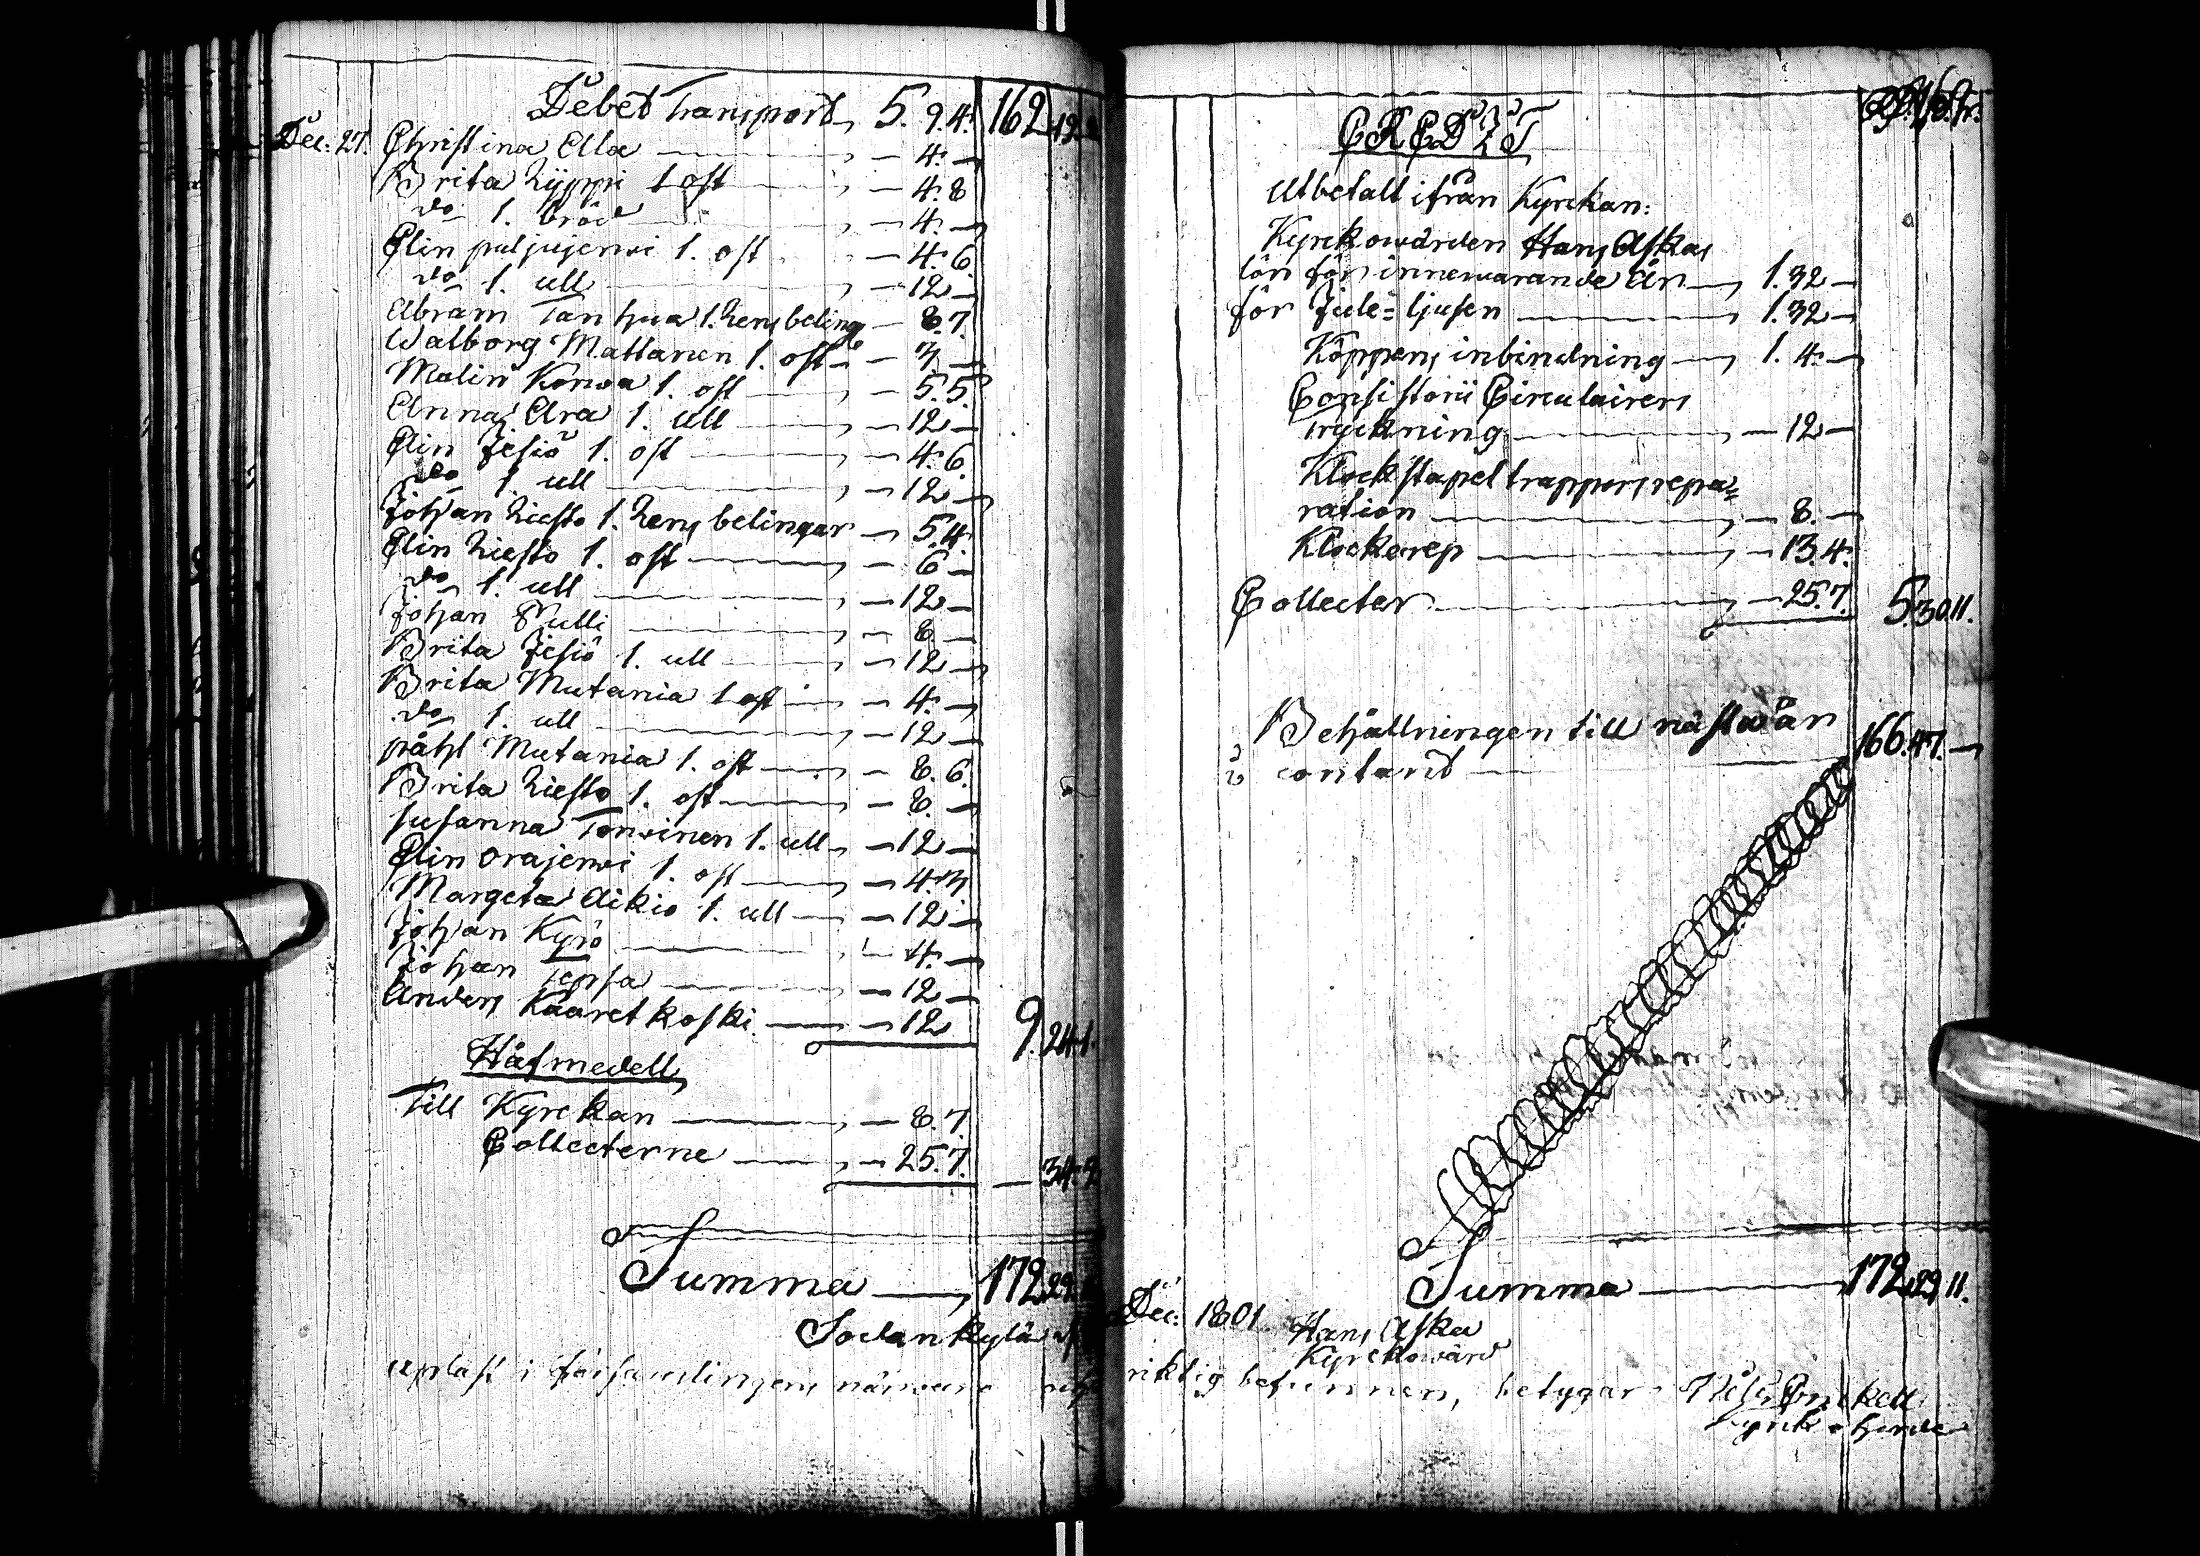 Debet Transport, 5. 9. 4. 162. 19.
Dec: 27. Christina Alla — 4. —
Brita Lyppi 1 ost — 4. 8
do 1. bröd — 4. —
Elin puljujerwi 1. ost — 4. 6.
do 1. ull — 12 —
Abram Tanhua 1. Lensbeling — 8. 7.
Walborg Mattanen 1. ost — 3 —
Malin Korwa 1. ost — 5. 5.
Anna Ara 1. ull — 12 —
Elin Jesiö 1. ost — 4. 6.
do 1. ull — 12 —
Johan Liesto 1. Lens belingar — 5. 4.
Elin Liesto 1. ost — 6 —
do 1. ull — 12 —
Johan Pulli — 8 —
Brita Jesiö 1. ull — 12 —
Brita Mutania 1 ost — 4. —
do 1. ull — 12 —
påhl Mutania 1. ost — 8. 6.
Brita Liesto 1. ost — 8. —
Susanna Torwinen 1. ull — 12 —
Elin Orajerwi 1. ost — 4. 3
Margeta Aikio 1. ull — 12 —
Johan Kyrö — 4. —
Johan Tepsa — 12 —
Anders Kaaretkoski — 12 9. 24. 1.
Håfmedell
Till Kyrckan — 8. 7.
Collecterne — 25. 7. — 34. 2
Summa — 172. 29.
Sodankylä
uplast i församlingens närwaro
CREDIT
Utbetalt ifrån Kyrckan:
Kyrckowärden Hans Askas
lön för innewarande År — 1. 32 —
för Jule= ljusen — 1. 32 —
Köppens inbindning — 1. 4. —
Consistorii Circulairers
Tryckning — 12 —
Klockstapel trappors repa=
ration — 8. —
Klockerep — 13. 4.
Collecter — 25. 7. 5. 30. 11.
Behållningen till nästa år
contant — 166. 47. —
Summa — 172. 29. 11.
Dec: 1801. Hans Aska
Kyrckowärd
riktig befunnen, betygar